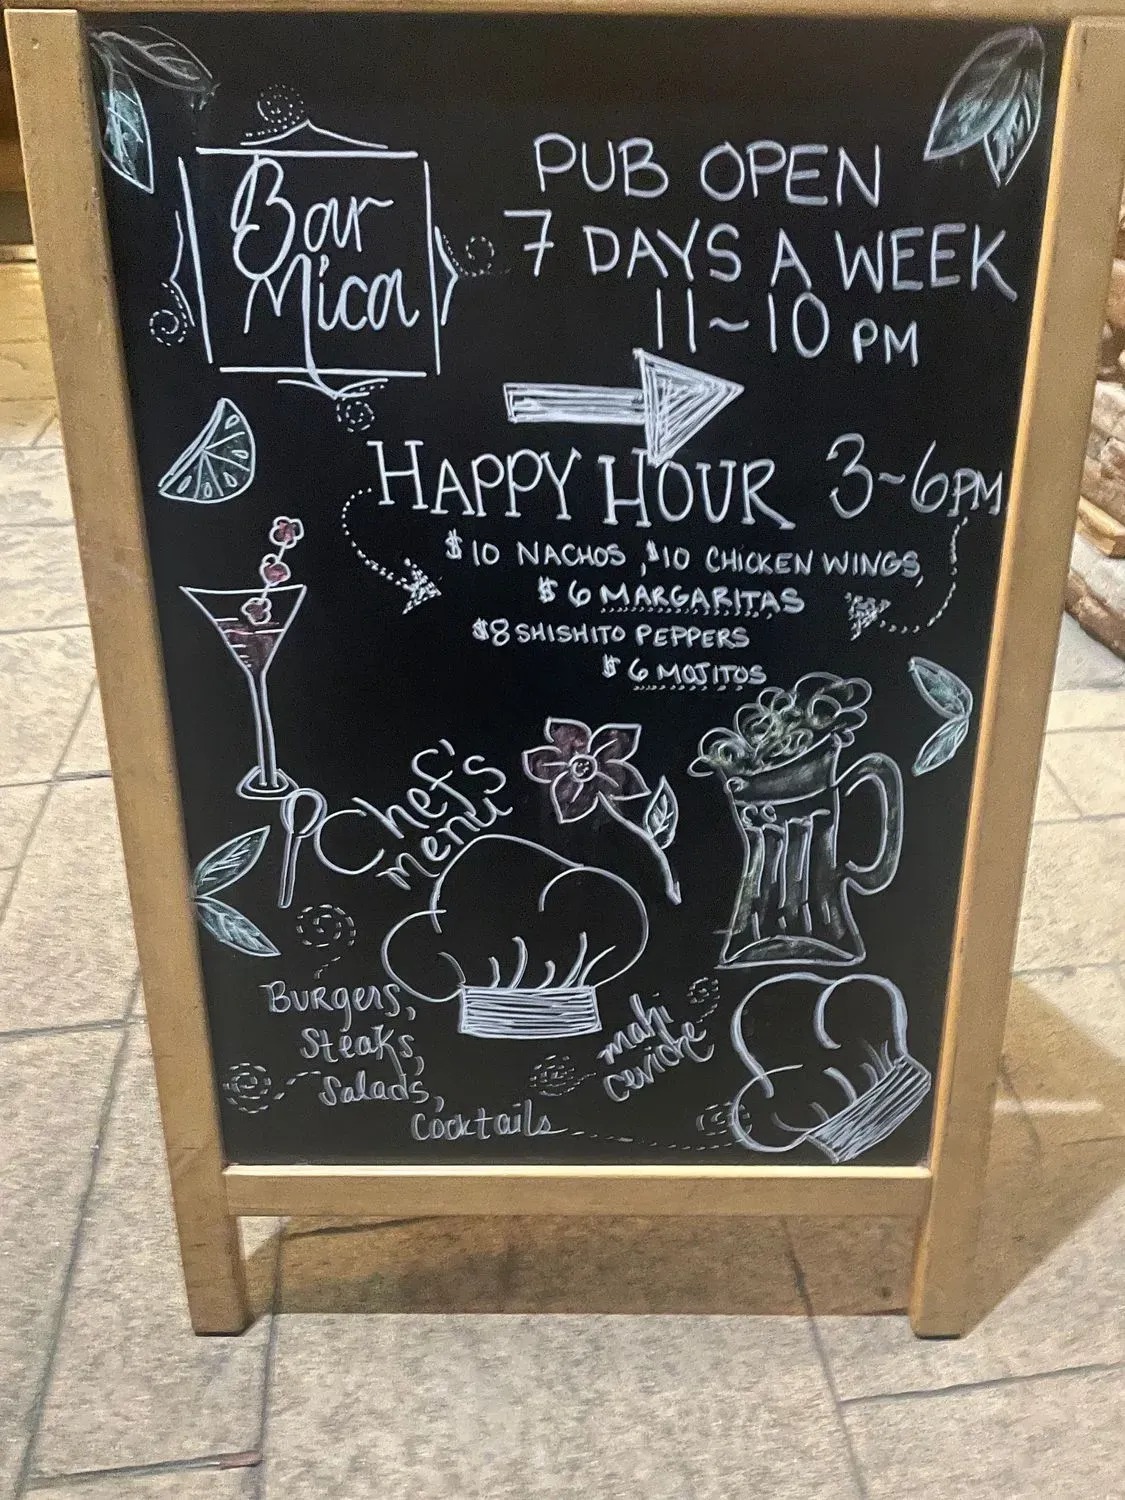 Bar
Mica
PUB OPEN
7 DAYS A WEEK
11~10 PM
HAPPY HOUR 3~6PM
$10 NACHOS, $10 CHICKEN WINGS,
$6 MARGARITAS
$8 SHISHITO PEPPERS
$6 MOJITOS
Chef's
menu
Burgers,
Steaks,
Salads,
Cocktails
mahi
ceviche